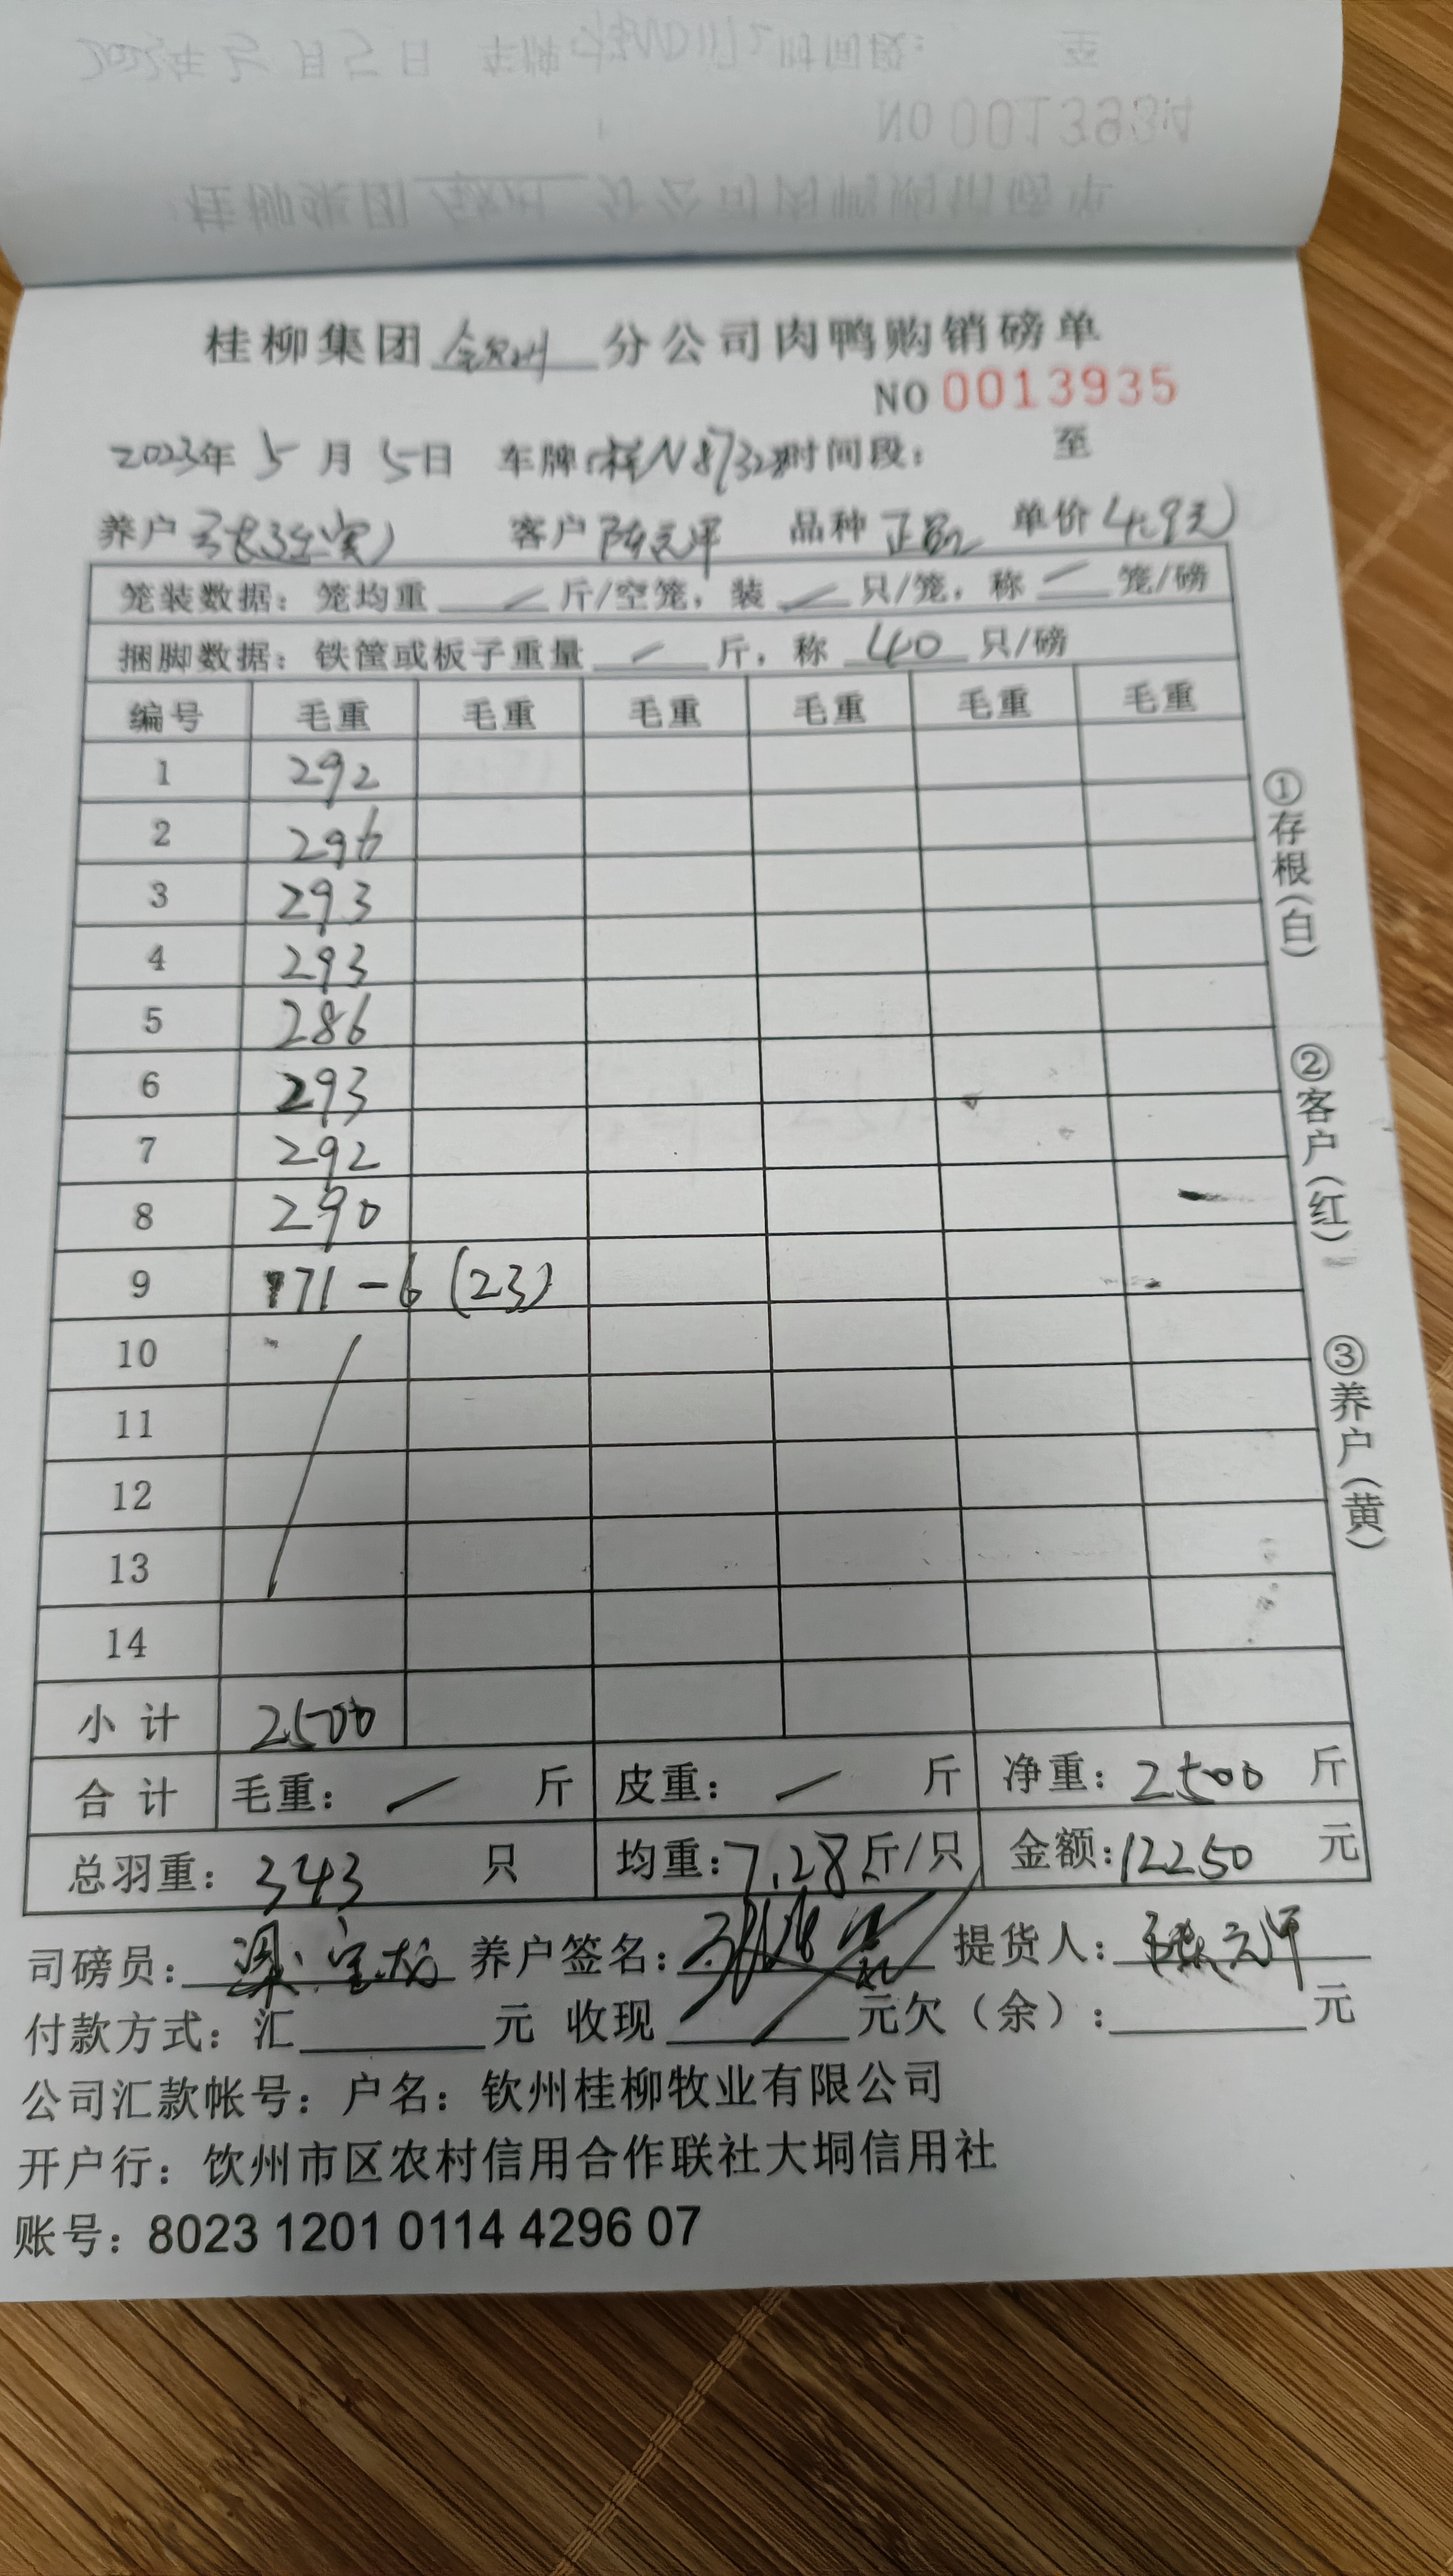 桂柳集团 钦州 分公司肉鸭购销磅单
NO 0013935
2023年 5 月 5日 车牌: 桂N87328 时间段: 至
养户 客户 陈元平 品种 正品 单价 4.9元
笼装数据: 笼均重 — 斤/空笼, 装 — 只/笼, 称 — 笼/磅
捆脚数据: 铁筐或板子重量 — 斤, 称 40 只/磅
编号 毛重 毛重 毛重 毛重 毛重 毛重
1 292
2 296
3 293
4 293
5 286
6 293
7 292
8 290
9 171-6 (23)
10
11
12
13
14
小 计 2500
合 计 毛重: — 斤 皮重: — 斤 净重: 2500 斤
总羽重: 343 只 均重: 7.28 斤/只 金额: 12250 元
司磅员: 养户签名: 提货人: 元平
付款方式: 汇 元 收现 元欠（余）: 元
公司汇款帐号: 户名: 钦州桂柳牧业有限公司
开户行: 饮州市区农村信用合作联社大垌信用社
账号: 8023 1201 0114 4296 07
①存根(白)
②客户(红)
③养户(黄)